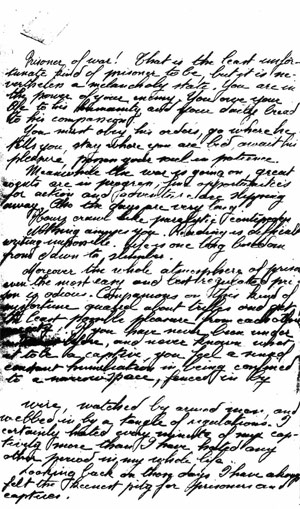 Prisoner of war! That is the least unfor-
tunate kind of prisoner to be, but it is ne-
vertheless a melancholy state. You are in
the power of your enemy. You owe your
life to his humanity and your daily bread
to his compassion.
You must obey his orders, go where he
tells you, stay where you are bid, await his
pleasure, possess your soul in patience.
Meanwhile the war is going on, great
events are in progress, fine opportunities
for action and adventure are slipping
away. Also the days are very long.
Hours crawl like paralytic centipedes.
Nothing amuses you. Reading is difficult
writing impossible. Life is one long boredom
from dawn to slumber.
Moreover the whole atmosphere of prison
even the most easy and best regulated pri-
son is odious. Companions in this kind of
misfortune quarrel about trifles and get
the least possible pleasure from each other's
society. If you have never been under
restraint before, and never known what
it to be a captive, you feel a sense
constant humiliation in being confined
to a narrow space, fenced in by
wire, watched by armed men, and
webbed in by a tangle of regulations. I
certainly hated every minute of my cap-
tivity more than I have hated any
other period in my whole life.
Looking back on those days I have always
felt the keenest pity for prisoners and
captives.